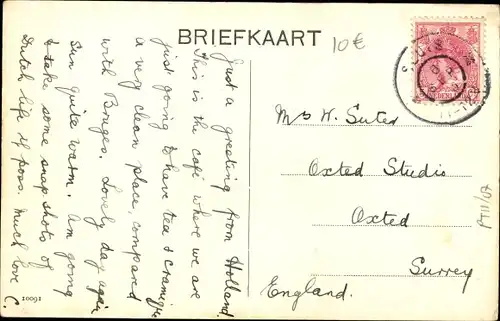 BRIEFKAART
10€
Just a greeting from Holland.
This is the café where we are
just going to have tea &
a very clean place, compared
with Bruges. Lovely day again
Sun quite warm. Am going
to take some snap shots of
Dutch life if poss. Much love
C.
16091
NEDERLAND
SLUIS
Mrs H. Suter
Oxted Studio
Oxted
Surrey
England.